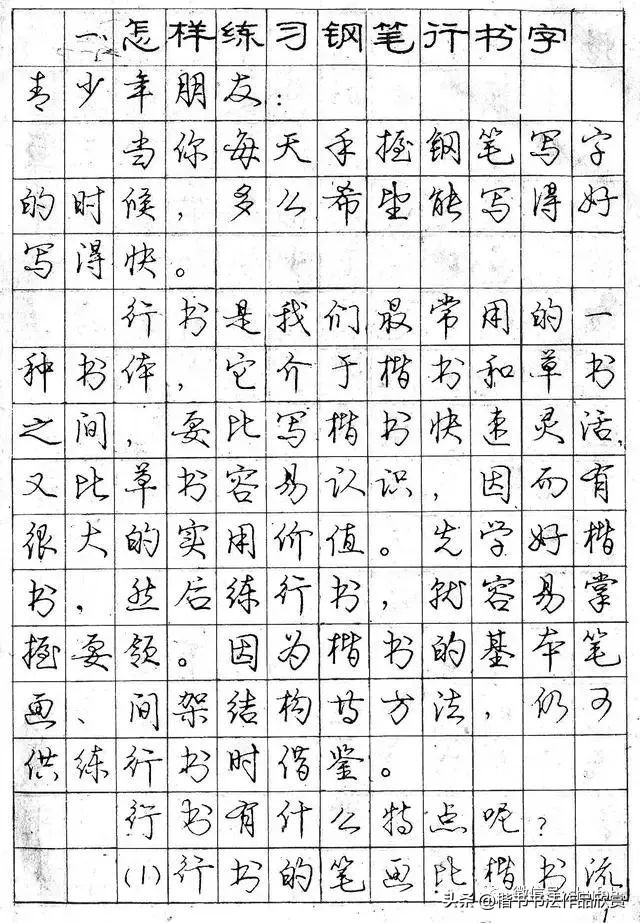 一、怎样练习钢笔行书字
青少年朋友：
当你每天手握钢笔写字
的时候，多么希望能写得好
写得快。
行书是我们最常用的一
种书体，它介于楷书和草书
之间，要比写楷书快速灵活，
又比草书容易认识，因而有
很大的实用价值。先学好楷
书，然后练行书，就容易掌
握要领。因为楷书的基本笔
画、间架结构等方法，仍可
供练行书时借鉴。
行书有什么特点呢？
(1)行书的笔画比楷书流
头条@楷书书法作品欣赏
1